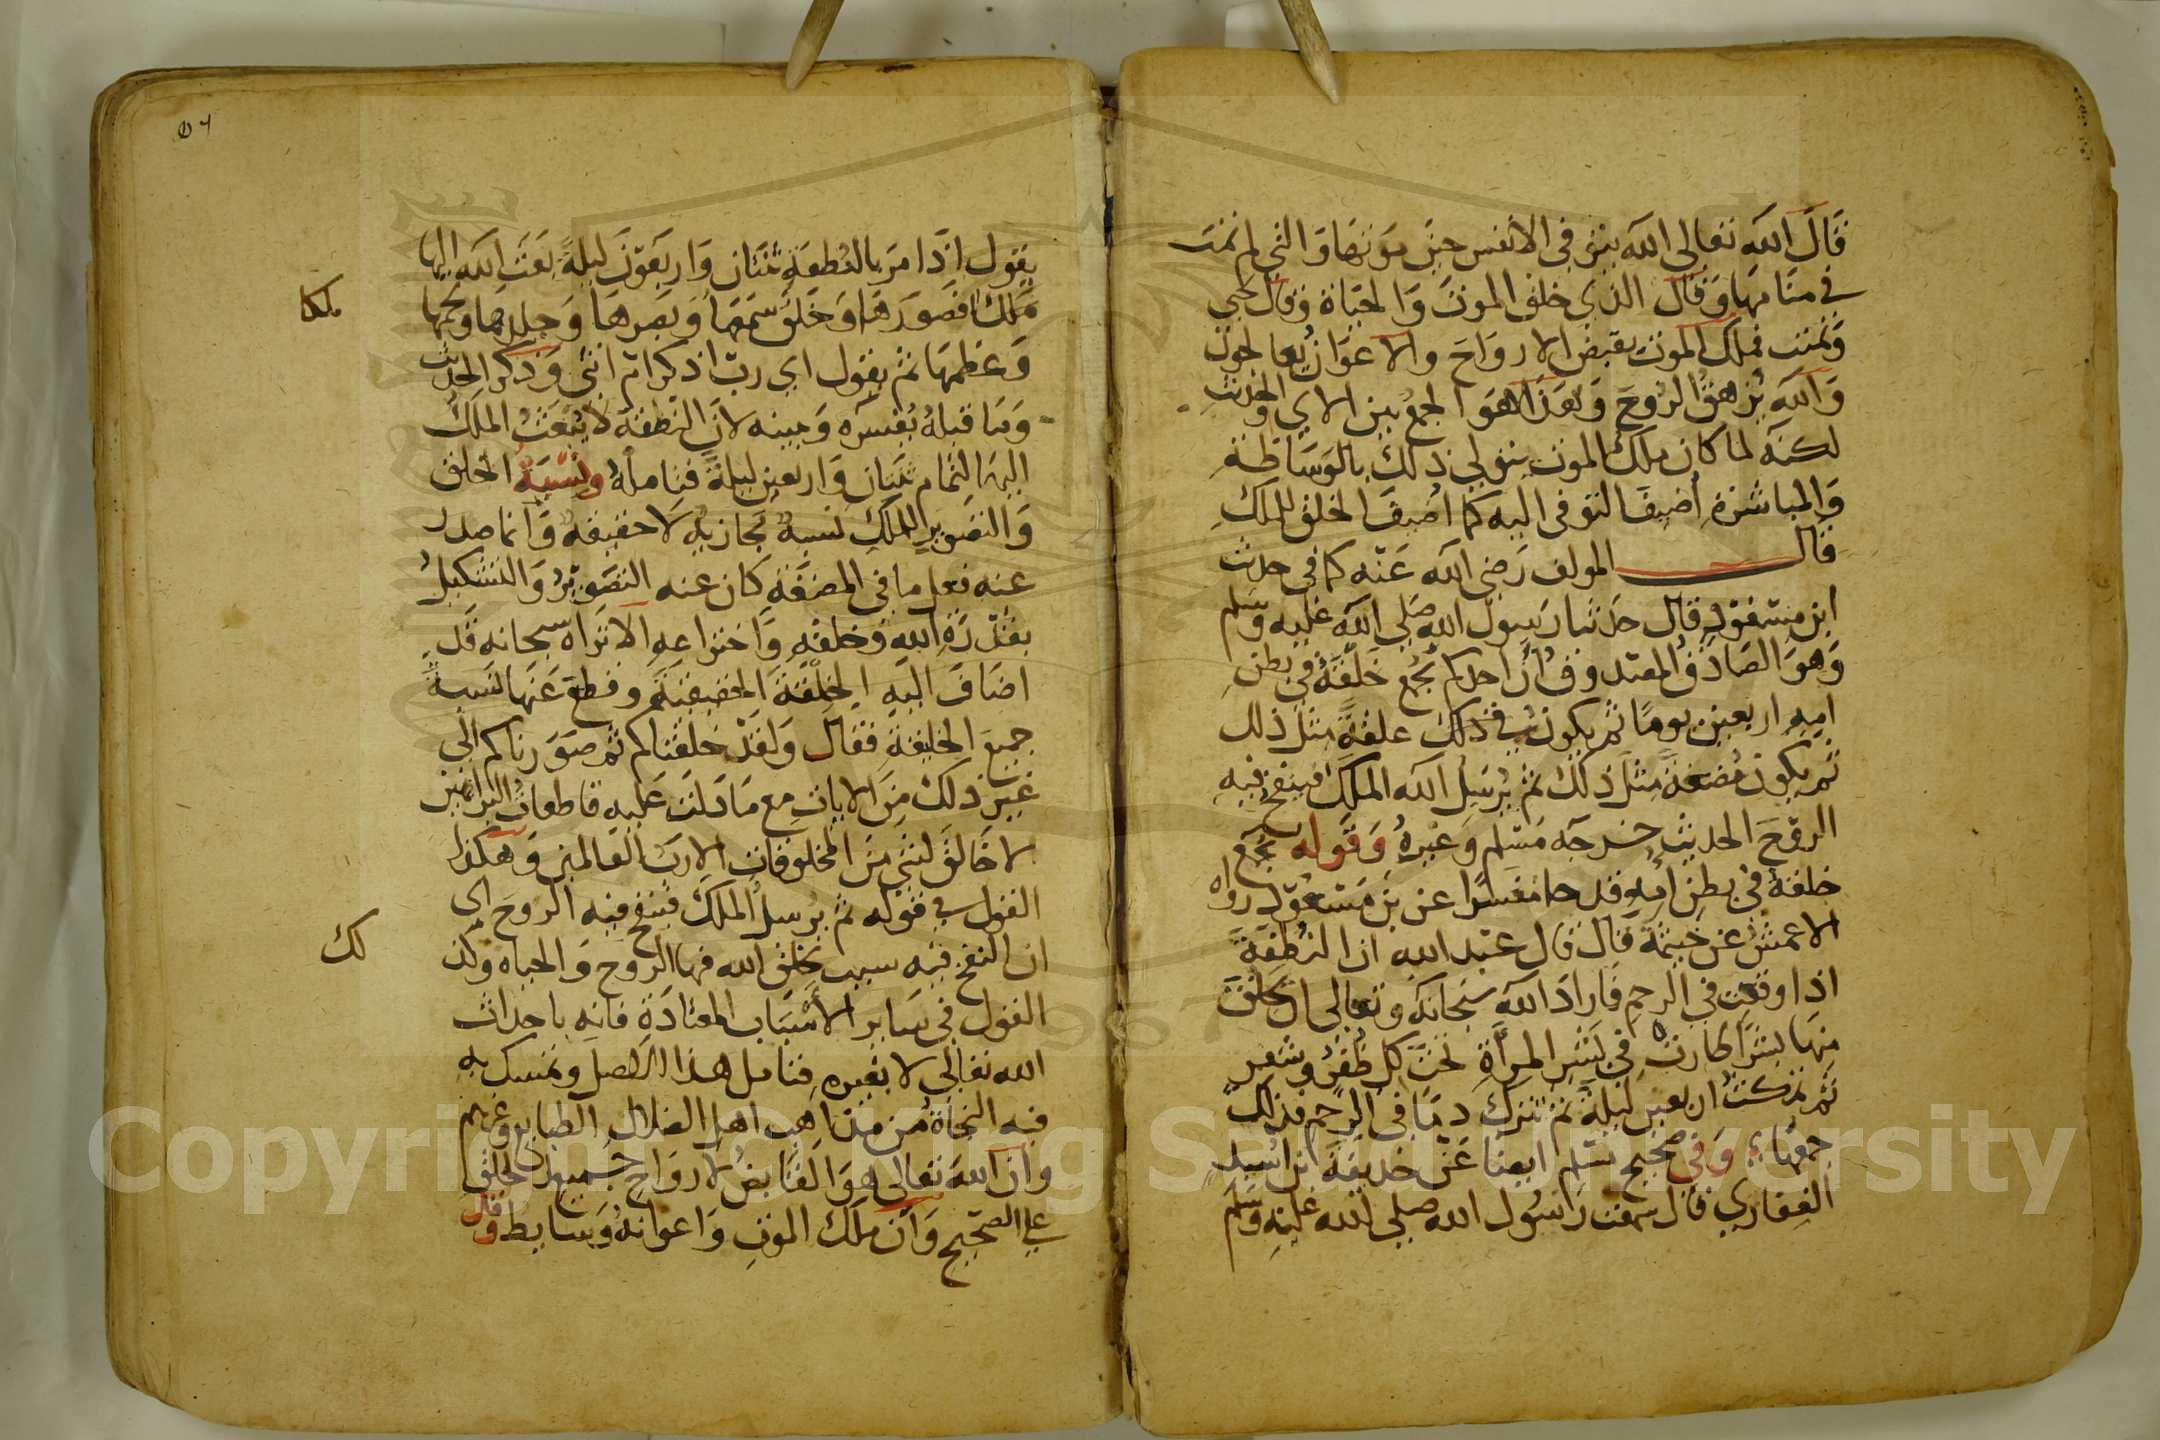 قال الله تعالى الله يتوفى الانفس حين موتها والتي لم تمت
في منامها وقال الذي خلق الموت والحياة وقال يحي
ويميت فملك الموت يقبض الارواح والاعوان يعالجون
والله يزهق الروح وهذا هو الجمع بين الاي والحديث
لكنه لما كان ملك الموت يتولى ذلك بالوساطة
والمباشرة اضيف التوفى اليه كما اضيف الخلق للملك
قال المولف رضي الله عنه كما في حديث
ابن مسعود قال حدثنا رسول الله صلى الله عليه وسلم
وهو الصادق المصدوق ان احدكم يجمع خلقه في بطن
امه اربعين يوما ثم يكون في ذلك علقة مثل ذلك
ثم يكون مضغة مثل ذلك ثم يرسل الله الملك فينفخ فيه
الروح الحديث خرجه مسلم وغيره وقوله يجمع
خلقه في بطن امه قد جا مفسرا عن بن مسعود رواه
الاعمش عن خيثمة قال قال عبد الله ان النطفة
اذا وقعت في الرحم فاراد الله سبحانه وتعالى ان يخلق
منها بشرا طارت في بشر المراة تحت كل ظفر وشعر
ثم تمكث اربعين ليلة ثم تنزل دما في الرحم فذلك
جمعها وفي صحيح مسلم ايضا عن حذيفة ابن اسيد
الغفاري قال سمعت رسول الله صلى الله عليه وسلم
٥٦
يقول اذا مر بالنطفة ثنتان واربعون ليلة بعث الله اليها
ملكا فصورها وخلق سمعها وبصرها وجلدها ولحمها
ملكا
وعظمها ثم يقول اي رب اذكر ام انثى وذكر الحديث
وما قبله يفسره ويبينه لان النطفة لا يبعث الملك
اليها لتمام ثنتان واربعين ليلة فتامله ونسبة الخلق
والتصوير للملك نسبة مجازية لا حقيقة وانما صدر
عنه فعل ما في المضغة كان عنه التصوير والتشكيل
بقدرة الله وخلقه واختراعه الا تراه سبحانه قد
اضاف اليه الخلقة الحقيقية وقطع عنها نسبة
جميع الخليقة فقال ولقد خلقناكم ثم صورناكم الى
غير ذلك من الايات مع ما دلت عليه قاطعات البراهين
لا خالق لشي من المخلوقات الا رب العالمين وهكذا
القول في قوله ثم يرسل الملك فينفخ فيه الروح اي
ان النفخ فيه سبب يخلق الله فيها الروح والحياه وكذ
لك
القول في ساير الاسباب المعتادة فانه باحداث
الله تعالى لا بغيره فتامل هذا الاصل وتمسك به
فيه النجاة من مذاهب اهل الضلال الطبايع وغيرهم
وان الله تعالى هو القابض لارواح جميع الخلق
على الصحيح وان ملك الموت واعوانه وسايط وقال